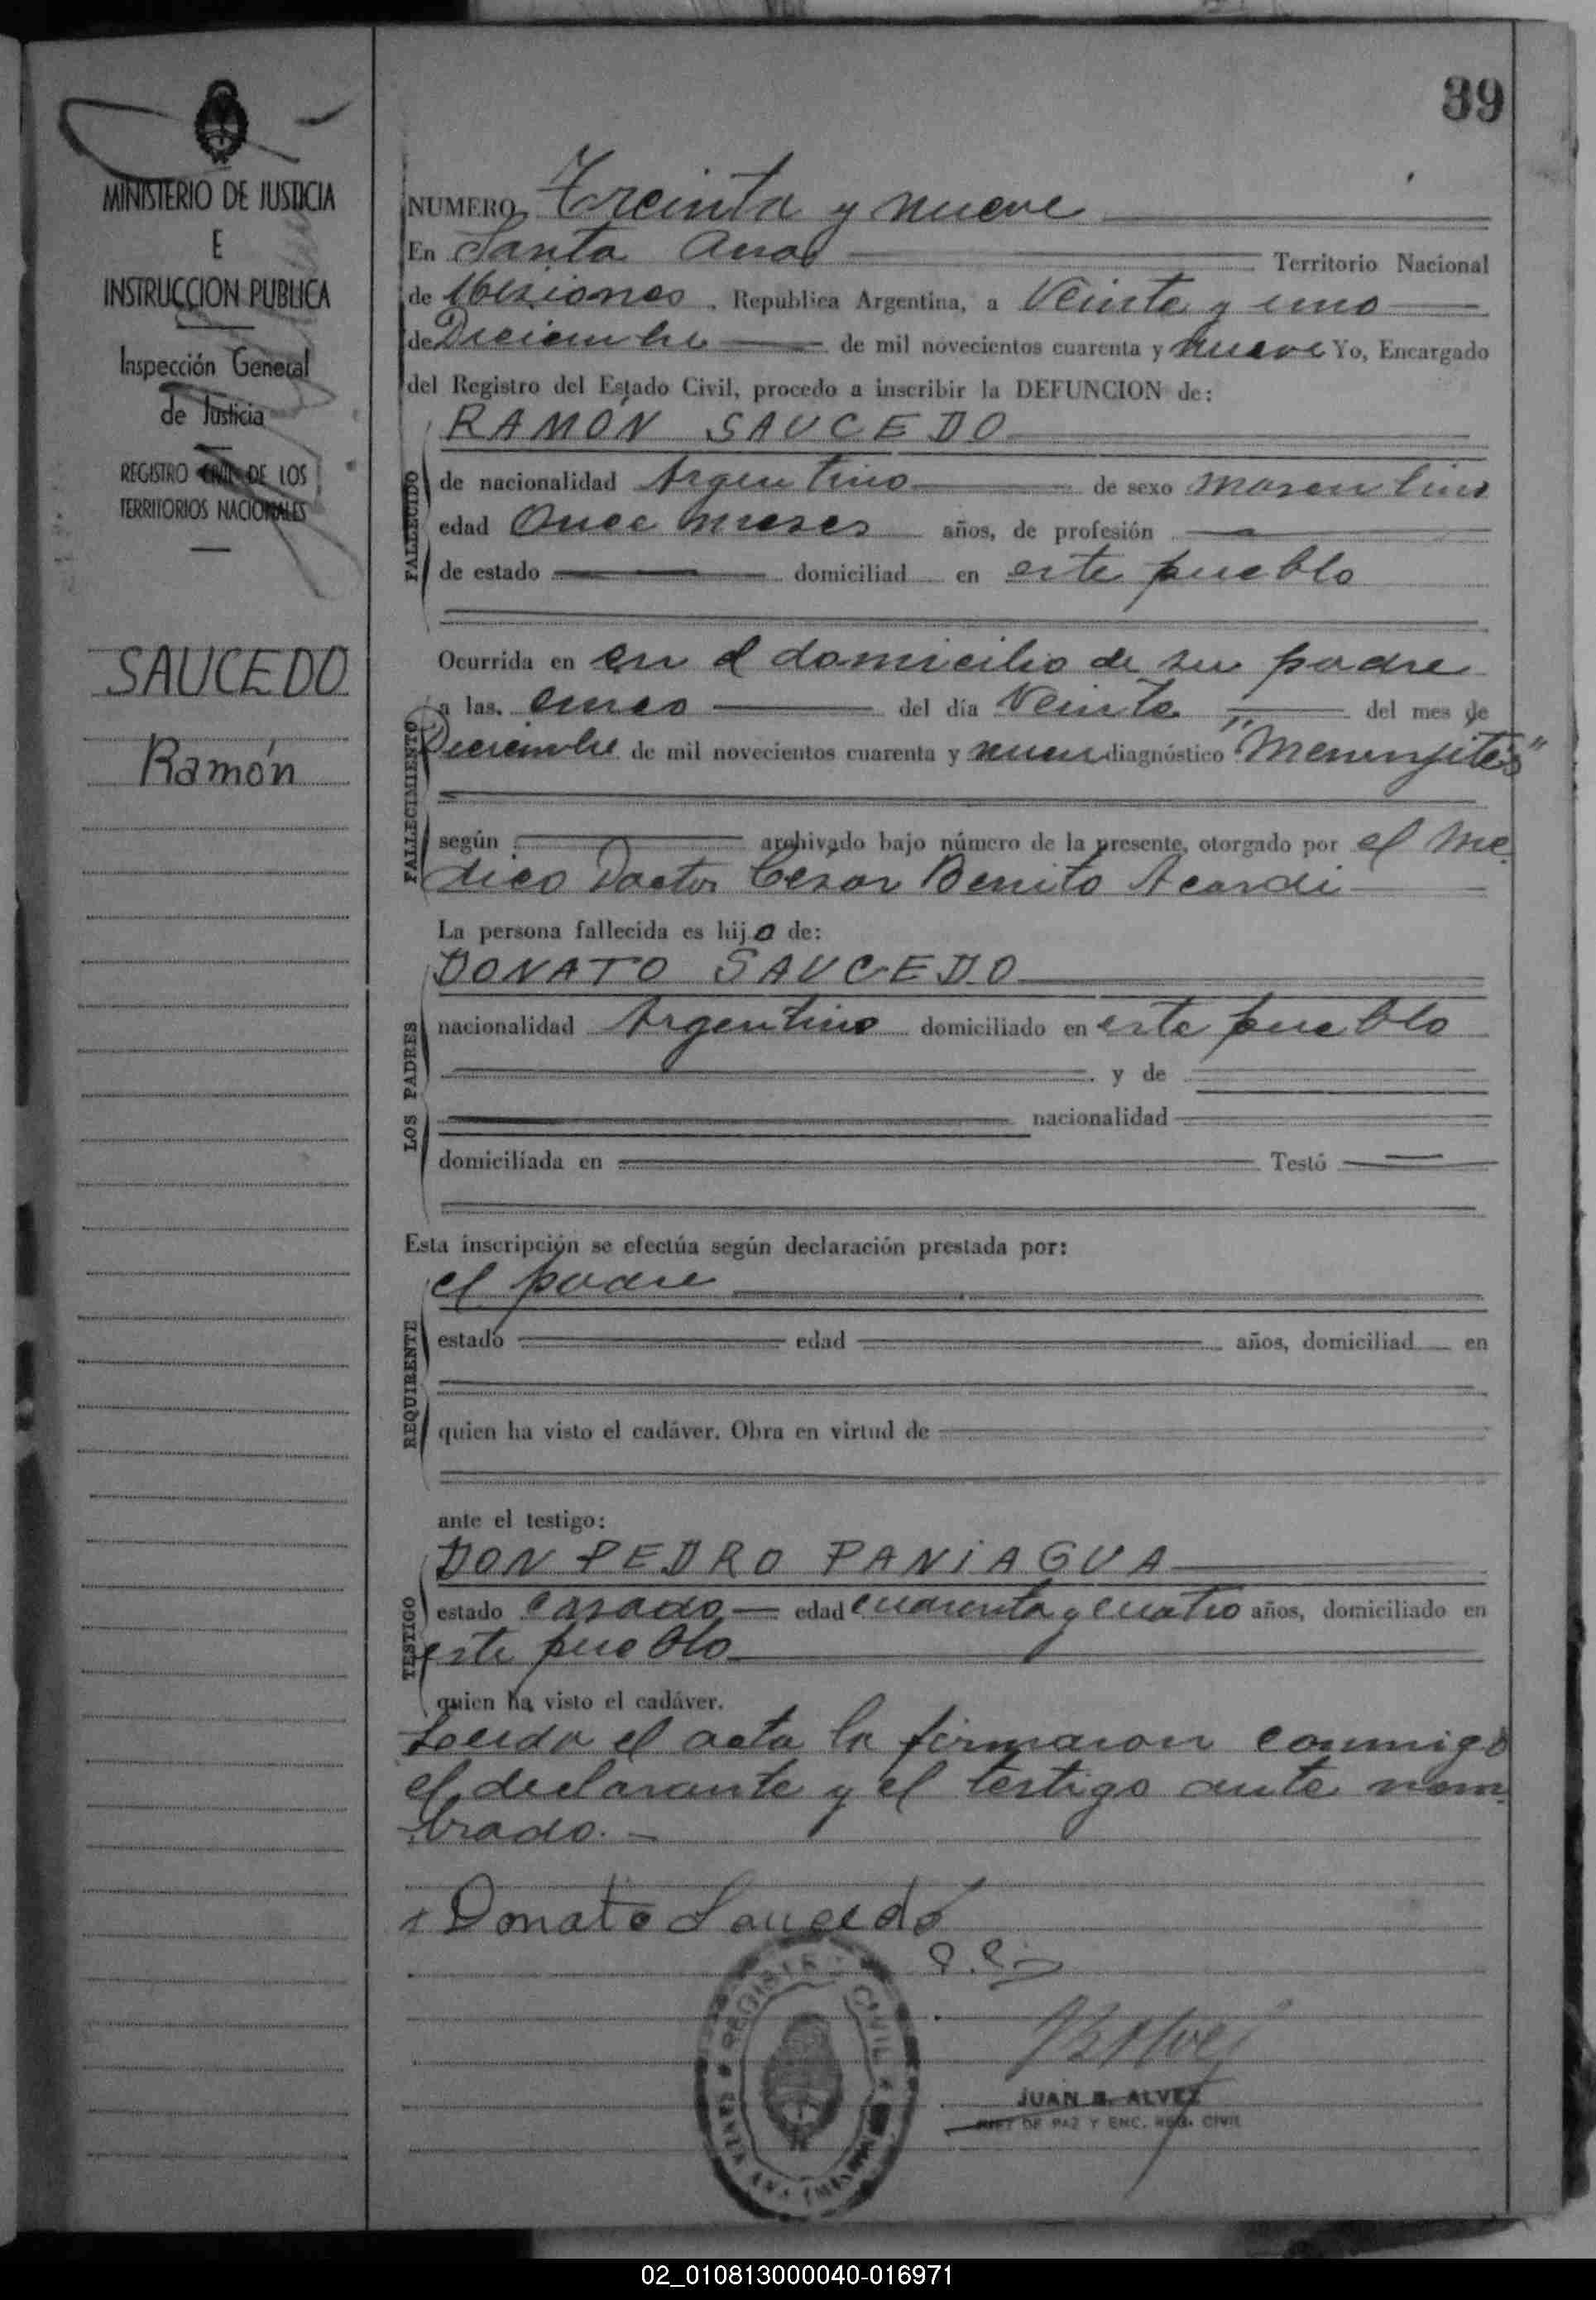 39
MINISTERIO DE JUSTICIA
E
INSTRUCCION PUBLICA
Inspección General
de Justicia
REGISTRO CIVIL DE LOS
TERRITORIOS NACIONALES
SAUCEDO
Ramón
NUMERO Treinta y nueve
En Santa Ana Territorio Nacional
de Misiones, Republica Argentina, a Veinte y uno
de Diciembre de mil novecientos cuarenta y nueve Yo, Encargado
del Registro del Estado Civil, procedo a inscribir la DEFUNCION de:
RAMÓN SAUCEDO
FALLECIDO
de nacionalidad Argentino de sexo masculino
edad Once meses años, de profesión
de estado domiciliad en este pueblo
FALLECIMIENTO
Ocurrida en en el domicilio de su padre
a las. cinco del día Veinte del mes de
Diciembre de mil novecientos cuarenta y nueve diagnóstico "Meningitis"
según archivado bajo número de la presente, otorgado por el Me
dico Doctor Cesar Benito Acardi
La persona fallecida es hijo de:
LOS PADRES
DONATO SAUCEDO
nacionalidad Argentino domiciliado en este pueblo
y de
nacionalidad
domiciliada en Testó
Esta inscripción se efectúa según declaración prestada por:
REQUIRENTE
el padre
estado edad años, domiciliad en
quien ha visto el cadáver. Obra en virtud de
ante el testigo:
TESTIGO
DON PEDRO PANIAGUA
estado casado edad cuarenta y cuatro años, domiciliado en
este pueblo
quien ha visto el cadáver.
Leida el acta la firmaron conmigo
el declarante y el testigo ante nom
brado.
Donato Saucedo
REGISTRO CIVIL
SANTA ANA (MISIONES)
JUAN B. ALVEZ
JUEZ DE PAZ Y ENC. REG. CIVIL
02_010813000040-016971